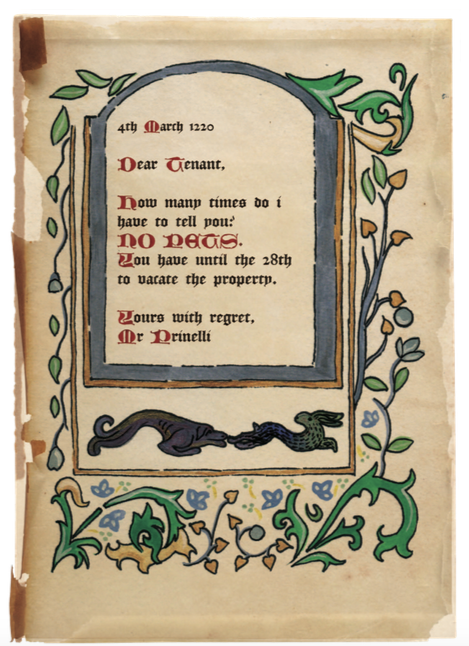 4th March 1220
Dear Tenant,
How many times do i
have to tell you?
NO PETS.
You have until the 28th
to vacate the property.
Yours with regret,
Mr Prinelli